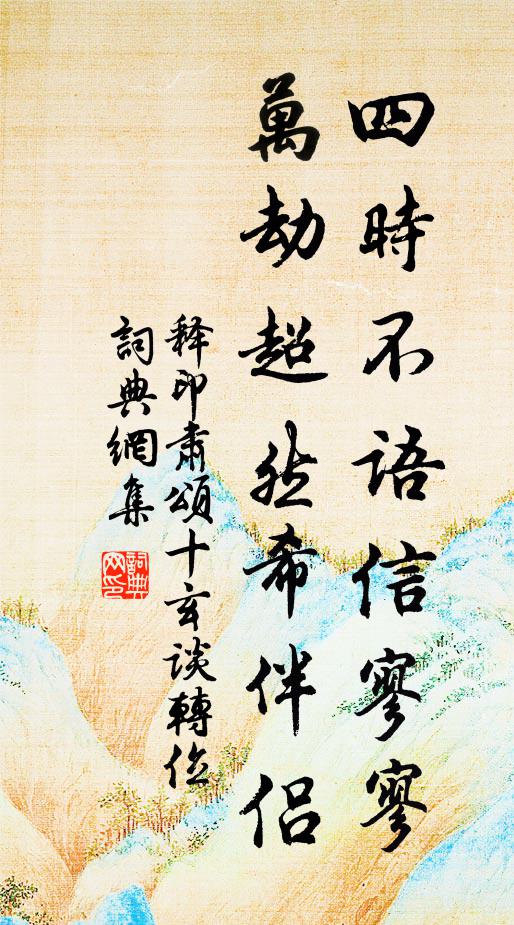 四時不語信寥寥
萬劫超然希伴侶
释印肅頌十玄談轉位
詞典網集
詞典网印